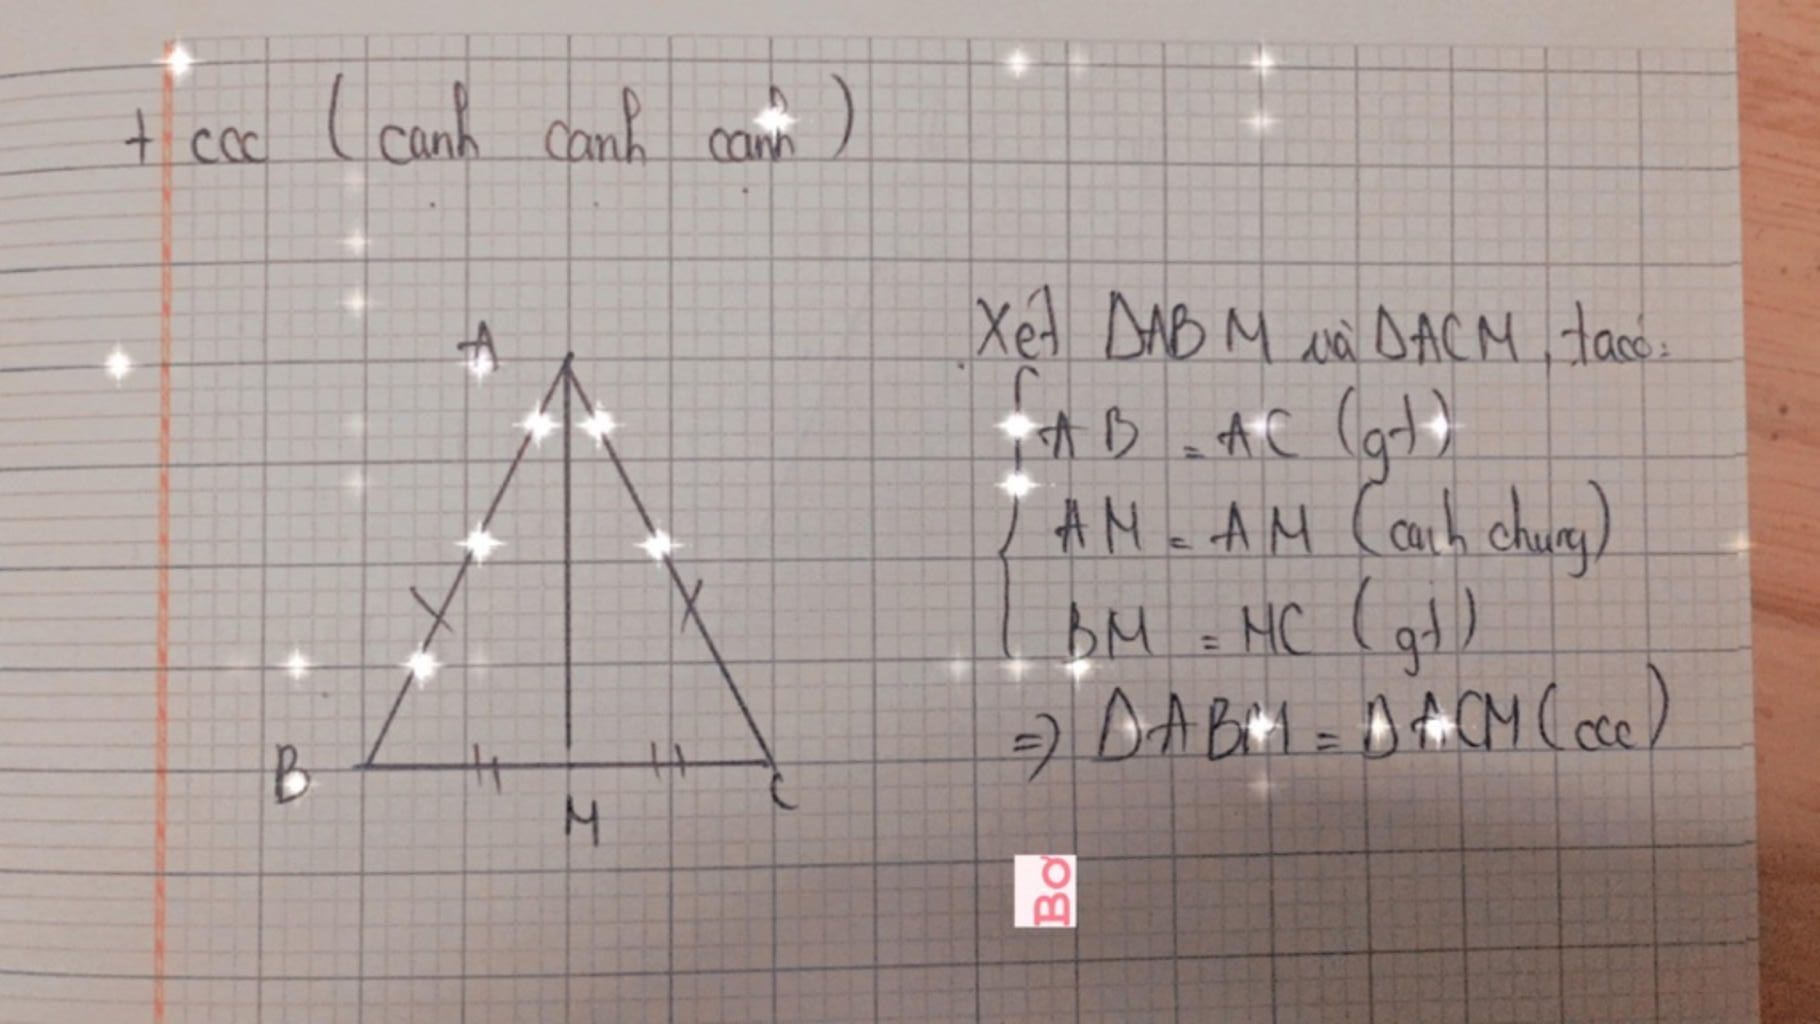 + ccc ( cạnh cạnh cạnh )
A
B
M
C
Xét ΔABM và ΔACM, ta có:
AB = AC (gt)
AM = AM (cạnh chung)
BM = MC (gt)
=> ΔABM = ΔACM (ccc)
Bơ